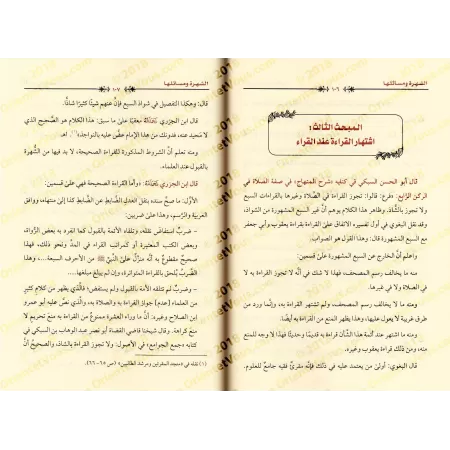 الشهرة ومسائلها
١٠٦
المبحث الثالث:
اشتهار القراءة عند القراء
قال أبو الحسن السبكي في كتابه «شرح المنهاج» في صفة الصلاة في
الركن الرابع: «فرع: قالوا: تجوز القراءة في الصلاة وغيرها بالقراءات السبع
ولا تجوز بالشاذ. وظاهر هذا الكلام يوهم أن غير السبع المشهورة من الشواذ،
وقد نقل البغوي في أول تفسيره الاتفاق على القراءة بقراءة يعقوب وأبي جعفر
مع السبع المشهورة قال: وهذا القول هو الصواب.
واعلم أن الخارج عن السبع المشهورة على قسمين:
منه ما يخالف رسم المصحف، فهذا لا شك في أنه لا تجوز القراءة به لا
في الصلاة ولا في غيرها.
ومنه ما لا يخالف رسم المصحف، ولم تشتهر القراءة به، وإنما ورد من
طرق غريبة لا يعول عليها، وهذا يظهر المنع من القراءة به أيضا.
ومنه ما اشتهر عند أئمة هذا الشأن القراءة به قديما وحديثا فهذا لا وجه للمنع
منه، ومن ذلك قراءة يعقوب وغيره.
قال البغوي: أولى من يعتمد عليه في ذلك، فإنه مقرئ فقيه جامع للعلوم.
الشهرة ومسائلها
١٠٧
قال: وهكذا التفصيل في شواذ السبع فإن عنهم شيئا كثيرا شاذا.
قال ابن الجزري معقبا على ما سبق: هذا الكلام هو الصحيح الذي
لا محيد عنه، فدونك من هذا الإمام عض عليه بالنواجذ» اهـ.
ومنه تعلم أن الشروط المذكورة للقراءة الصحيحة، لا بد فيها من الشهرة
بالقبول عند العلماء.
قال ابن الجزري: «وأما القراءة الصحيحة فهي على قسمين:
الأول: ما صح سنده بنقل العدل الضابط عن الضابط كذا إلى منتهاه، ووافق
العربية والرسم، وهذا على ضربين:
– ضرب استفاض نقله، وتلقاه الأئمة بالقبول كما انفرد به بعض الرواة،
وبعض الكتب المعتبرة أو كمراتب القراء في المد ونحو ذلك، فهذا
صحيح مقطوع به أنه منزل على النبي ﷺ من الأحرف السبعة... وهذا
الضرب يلحق بالقراءة المتواترة، وإن لم يبلغ مبلغها...
– وضرب لم تتلقه الأمة بالقبول، ولم يستفض؛ فالذي يظهر من كلام كثير
من العلماء [عدم] جواز القراءة به والصلاة به، والذي نص عليه أبو عمرو
ابن الصلاح، وغيره: أن ما وراء العشرة ممنوع من القراءة به منع تحريم لا
منع كراهة. وقال شيخنا قاضي القضاة أبو نصر عبد الوهاب بن السبكي في
كتابه «جمع الجوامع» في الأصول: ولا تجوز القراءة بالشاذ، والصحيح أن